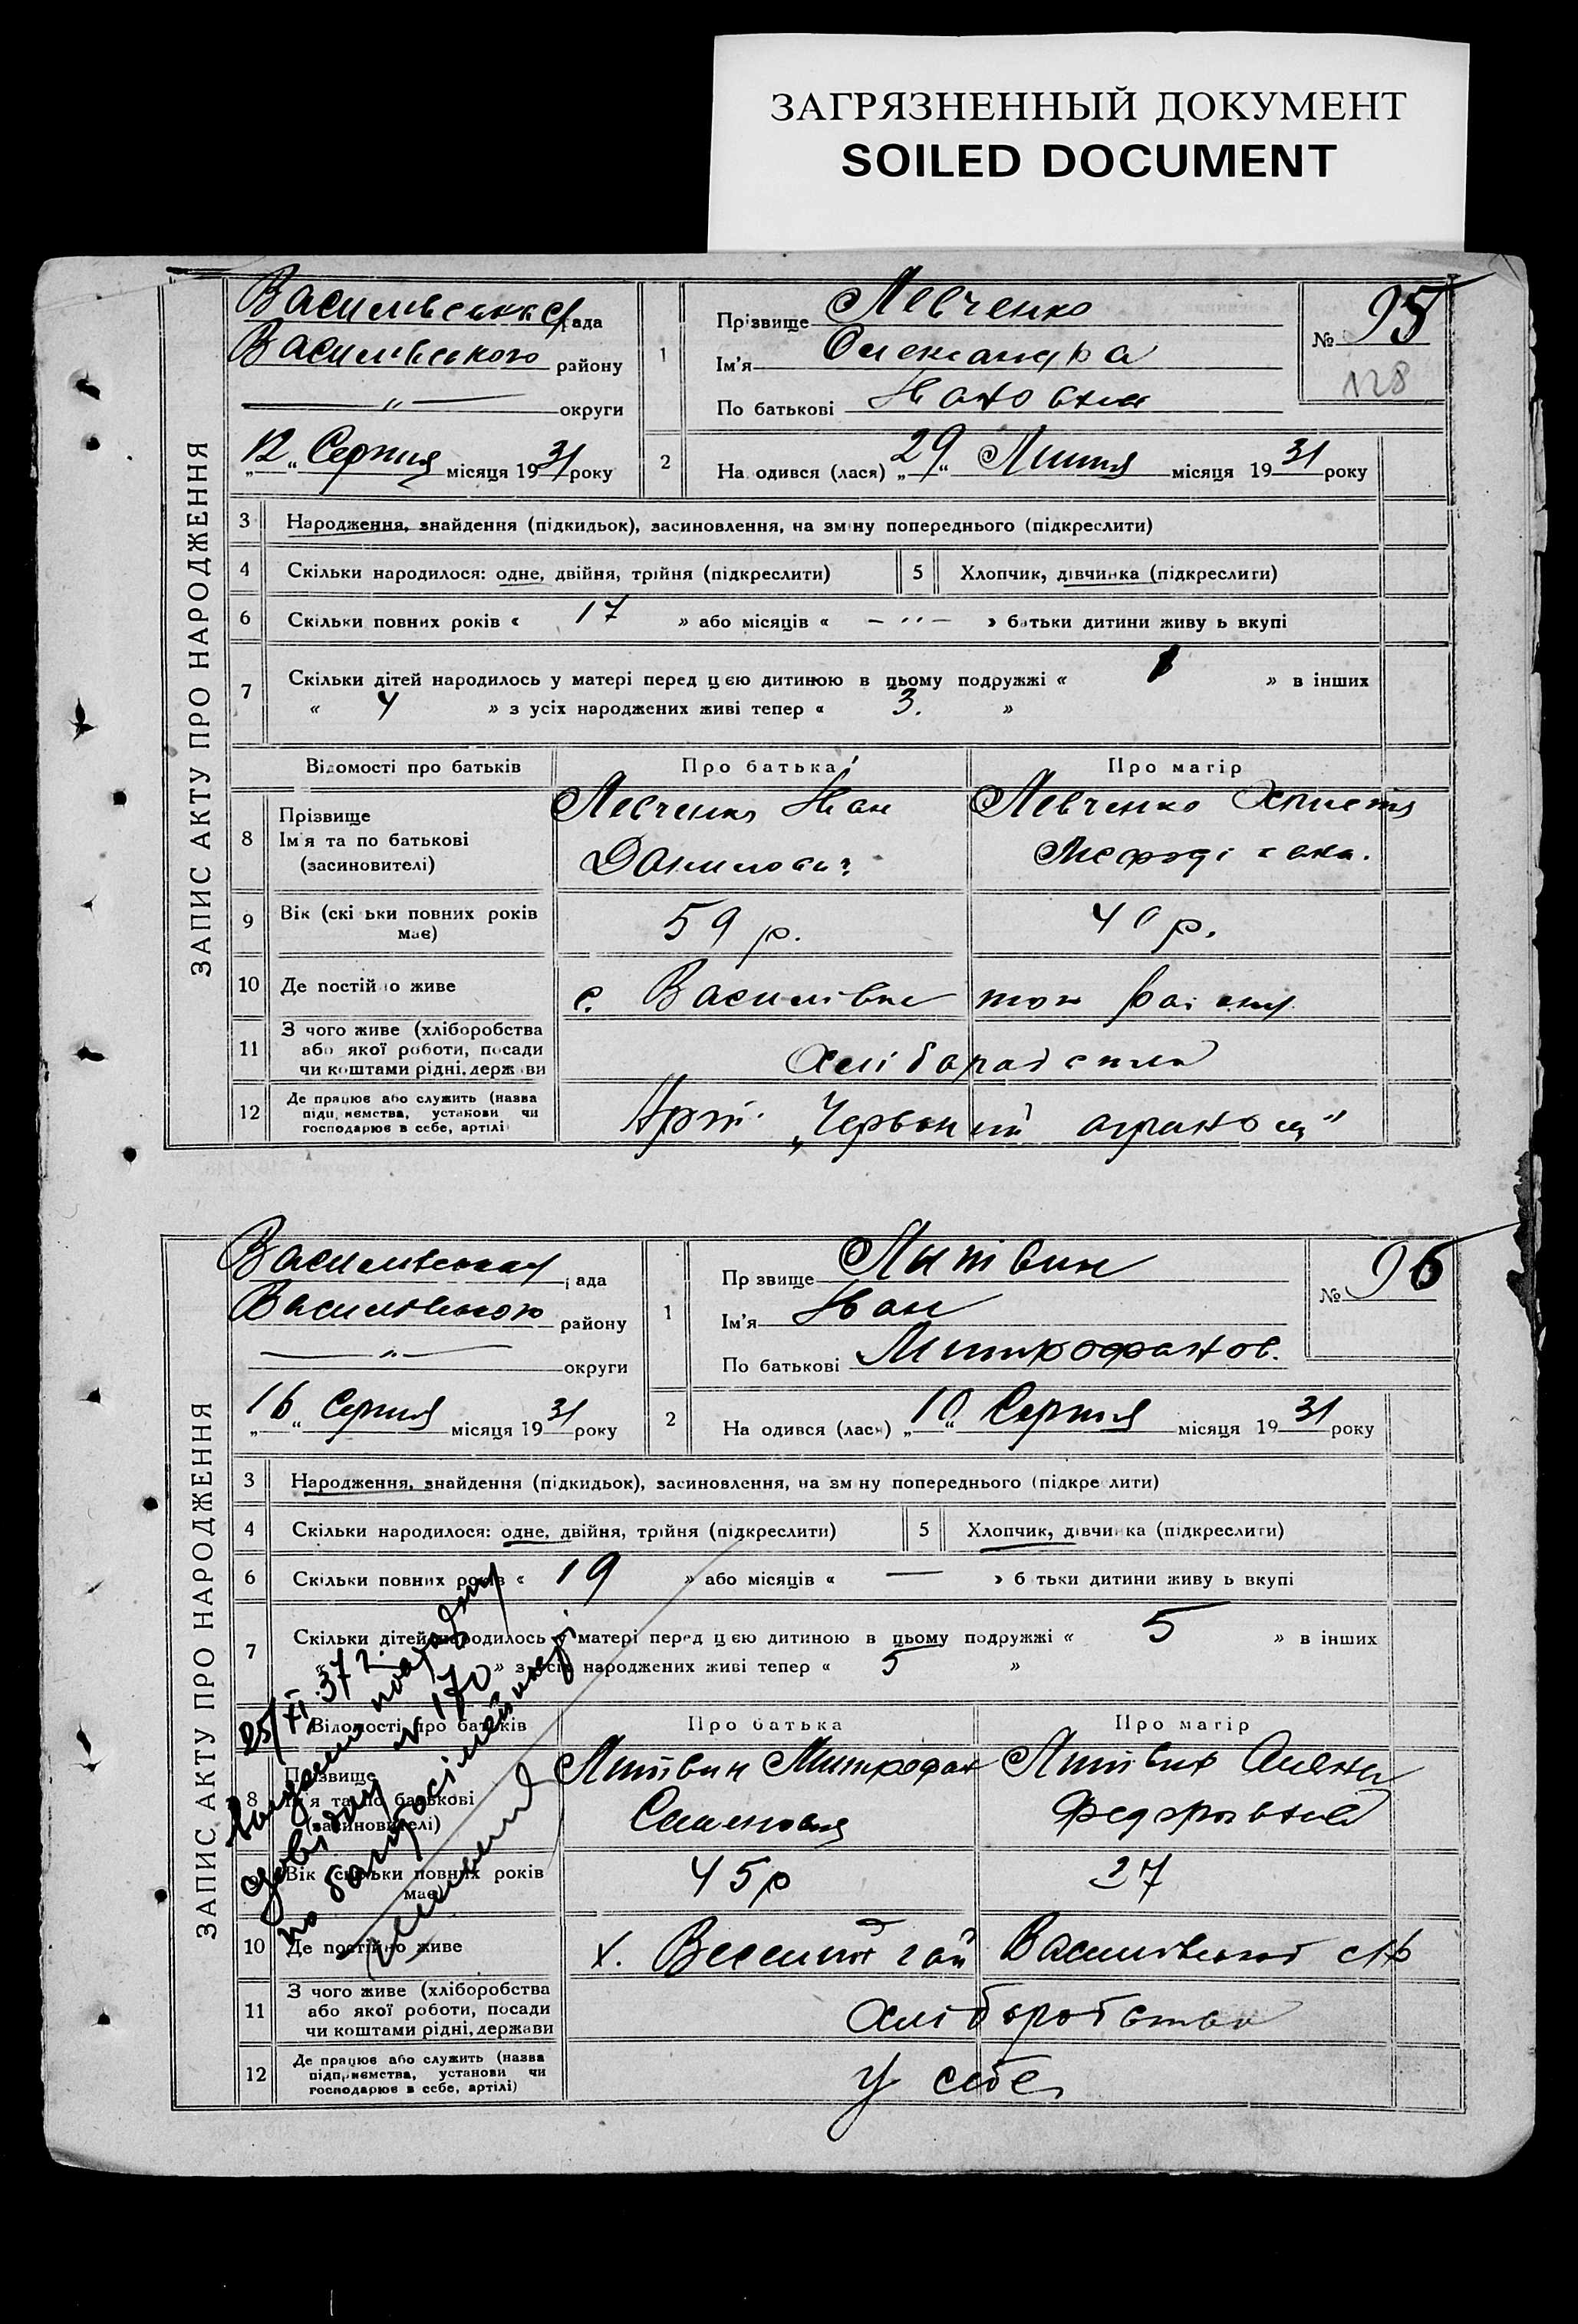 ЗАГРЯЗНЕННЫЙ ДОКУМЕНТ
SOILED DOCUMENT
ЗАПИС АКТУ ПРО НАРОДЖЕННЯ
Василівська рада
Василівського району
—〃— округи
„12“ Серпня місяця 1931 року
1
Прізвище Левченко
Ім'я Олександра
По батькові Івановна
№ 95
128
2
На одився (лася) „29“ Липня місяця 1931 року
3 Народження, знайдення (підкидьок), засиновлення, на зміну попереднього (підкреслити)
4 Скільки народилося: одне, двійня, трійня (підкреслити) 5 Хлопчик, дівчинка (підкреслити)
6 Скільки повних років « 17 » або місяців « —〃— » батьки дитини живу ь вкупі
7 Скільки дітей народилось у матері перед цією дитиною в цьому подружжі « » в інших
« 4 » з усіх народжених живі тепер « 3. »
Відомості про батьків Про батька Про матір
8 Прізвище
Ім'я та по батькові
(засиновителі)
Левченко Іван
Данилович
Левченко Христя
Мефодіевна.
9 Вік (скі ьки повних років
має)
59 р. 40 р.
10 Де постійно живе с. Василівка того району
11 З чого живе (хліборобства
або якої роботи, посади
чи коштами рідні, держави
Хліборобства
12 Де працює або служить (назва
підприємства, установи чи
господарює в себе, артілі)
Арт. „Червоний аграном“
ЗАПИС АКТУ ПРО НАРОДЖЕННЯ
Василівська рада
Василівського району
—〃— округи
„16“ Серпня місяця 1931 року
1
Пр звище Литвин
Ім'я Іван
По батькові Митрофанов.
№ 96
2
На одився (лася) „10“ Серпня місяця 1931 року
3 Народження, знайдення (підкидьок), засиновлення, на зміну попереднього (підкре лити)
4 Скільки народилося: одне, двійня, трійня (підкреслити) 5 Хлопчик, дівчинка (підкреслити)
6 Скільки повних років « 19 » або місяців « — » б тьки дитини живу ь вкупі
7 Скільки дітей народилось у матері перед цією дитиною в цьому подружжі « 5 » в інших
« » з усіх народжених живі тепер « 5 »
25/XI.37 р.
видано повторну
довідку № 170
по багатосімейности
Відомості про батьків Про батька Про матір
8 Прізвище
Ім'я та по батькові
(засиновителі)
Литвин Митрофан
Литвин Оляна
Федоровна
9 Вік (скільки повних років
має)
45 р 37
10 Де постійно живе х. Веселий гай Василівської с/р
11 З чого живе (хліборобства
або якої роботи, посади
чи коштами рідні, держави
Хліборобство
12 Де працює або служить (назва
підприємства, установи чи
господарює в себе, артілі)
У себе